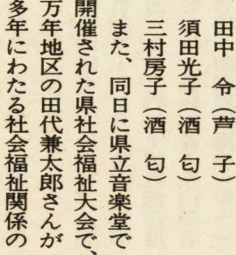 田中　令（芦　子）
須田光子（酒　匂）
三村房子（酒　匂）
また、同日に県立音楽堂で
開催された県社会福祉大会で、
万年地区の田代兼太郎さんが
多年にわたる社会福祉関係の